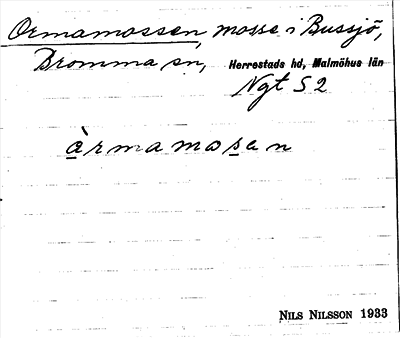 Ormamossen, mosse i Bussjö,
Bromma sn, Herrestads hd, Malmöhus län
Ngt S 2
àrmamosen
NILS NILSSON 1933